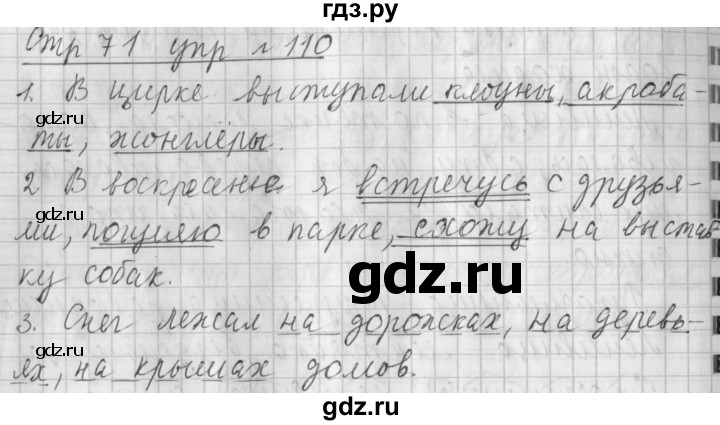 гдз.ру
Стр 71 упр г 110
1. В цирке выступали клоуны, акроба-
ты, жонглёры.
2 В воскресенье я встречусь с друзья-
ми, погуляю в парке, схожу на выстав
ку собак.
gdz.ru
3. Снег лежал на дорожках, на деревь-
ях, на крышах домов.
gdz.ru